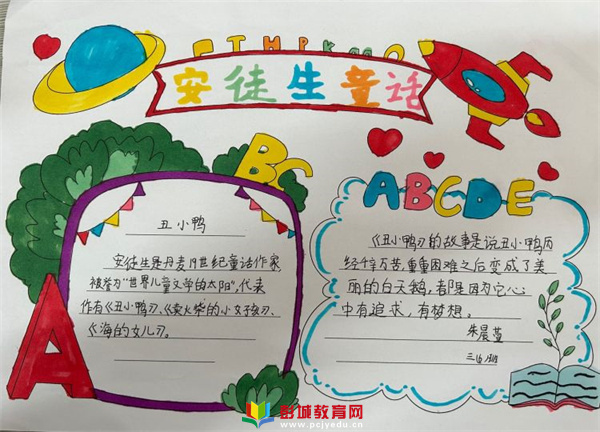 安徒生童话
BC
ABCDE
丑小鸭
安徒生是丹麦19世纪童话作家
被誉为"世界儿童文学的太阳",代表
作有《丑小鸭》、《卖火柴的小女孩》、
《海的女儿》。
《丑小鸭》的故事是说丑小鸭历
经千辛万苦、重重困难之后变成了美
丽的白天鹅,都是因为它心
中有追求,有梦想。
朱晨萱
A
彭城教育网
www.pcjyedu.cn